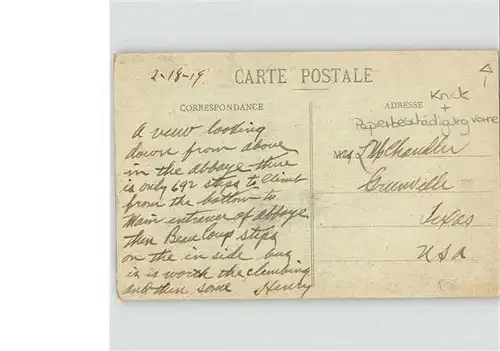 2-18-19
CARTE POSTALE
CORRESPONDANCE
ADRESSE
Knick
+
Papierbeschädigung vorne
A view looking
down from above
in the abbaye there
is only 692 steps to climb
from the bottom to
Main entrance of abbaye
then Beau Coup steps
on the in side but
it is worth the climbing
and then some Henry
Chandler
Greenville
Texas
USA